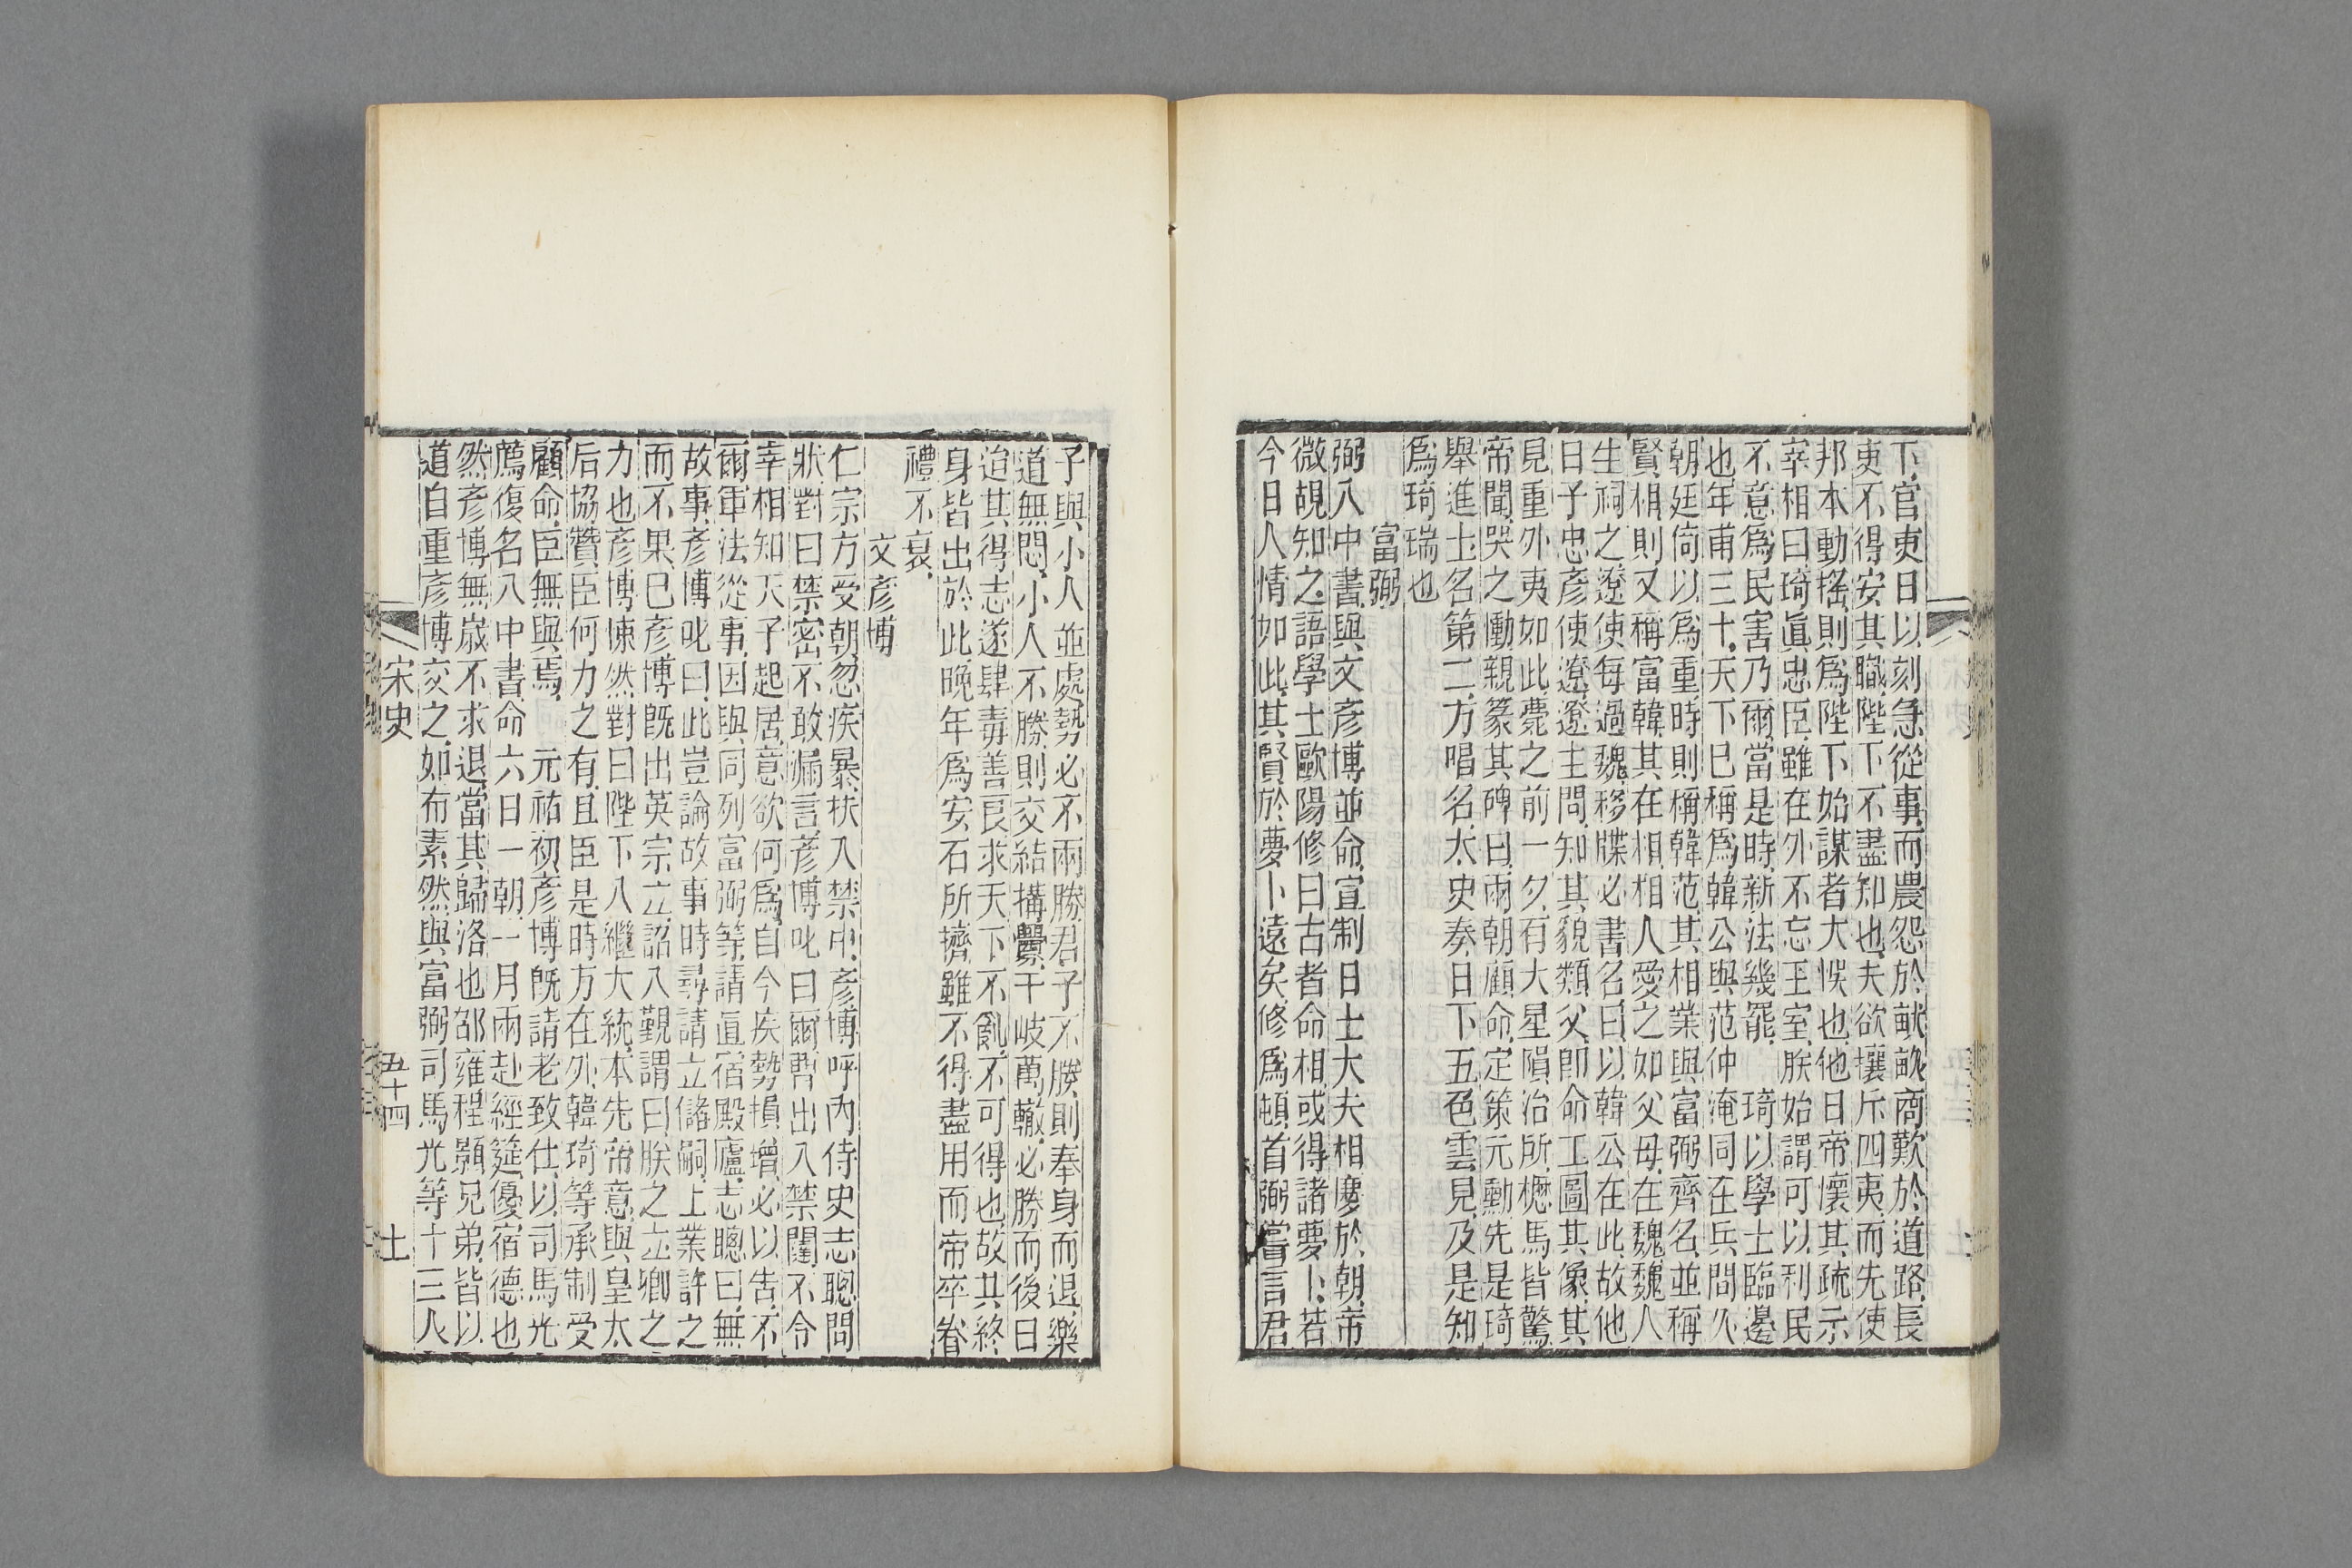 下官吏日以刻急從事而農怨於畎畝商歎於道路長
吏不得安其職陛下不盡知也夫欲攘斥四夷而先使
邦本動搖則爲陛下始謀者大悞也他日帝懷其疏示
宰相曰琦眞忠臣雖在外不忘王室朕始謂可以利民
不意爲民害乃爾當是時新法幾罷　琦以學士臨邊
也年甫三十天下已稱爲韓公與范仲淹同在兵間久
朝廷倚以爲重時則稱韓范其相業與富弼齊名並稱
賢相則又稱富韓其在相相人愛之如父母在魏魏人
生祠之遼使每過魏移牒必書名曰以韓公在此故他
日子忠彥使遼遼主問知其貌類父卽命工圖其象其
見重外夷如此薨之前一夕有大星隕治所櫪馬皆驚
帝聞哭之慟親篆其碑曰兩朝顧命定策元勳先是琦
舉進士名第二方唱名太史奏日下五色雲見及是知
爲琦瑞也
富弼
弼入中書與文彥博並命宣制日士大夫相慶於朝帝
微覘知之語學士歐陽修曰古者命相或得諸夢卜若
今日人情如此其賢於夢卜遠矣修爲頓首弼嘗言君
子與小人並處勢必不兩勝君子不勝則奉身而退樂
道無悶小人不勝則交結構釁千岐萬轍必勝而後日
迨其得志遂肆毒善良求天下不亂不可得也故其終
身皆出於此晚年爲安石所擠雖不得盡用而帝卒眷
禮不衰
文彥博
仁宗方受朝忽疾暴扶入禁中彥博呼內侍史志聰問
狀對曰禁密不敢漏言彥博叱曰爾曹出入禁闥不令
宰相知天子起居意欲何爲自今疾勢損增必以告不
爾軍法從事因與同列富弼等請直宿殿廬志聰曰無
故事彥博叱曰此豈論故事時尋請立儲嗣上業許之
而不果已彥博旣出英宗立詔入覲謂曰朕之立卿之
力也彥博悚然對曰陛下入繼大統本先帝意與皇太
后協贊臣何力之有且臣是時方在外韓琦等承制受
顧命臣無與焉　元祐初彥博旣請老致仕以司馬光
薦復名入中書命六日一朝一月兩赴經筵優宿德也
然彥博無歲不求退當其歸洛也邵雍程顥兄弟皆以
道自重彥博交之如布素然與富弼司馬光等十三人
宋史
五十四
土